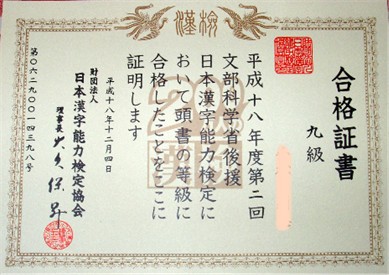 漢検
合格証書
九級
平成十八年度第二回
文部科学省後援
日本漢字能力検定に
おいて頭書の等級に
合格したことをここに
証明します
平成十八年十二月四日
財団法人
日本漢字能力検定協会
理事長
第〇六二九〇〇一四三九八号